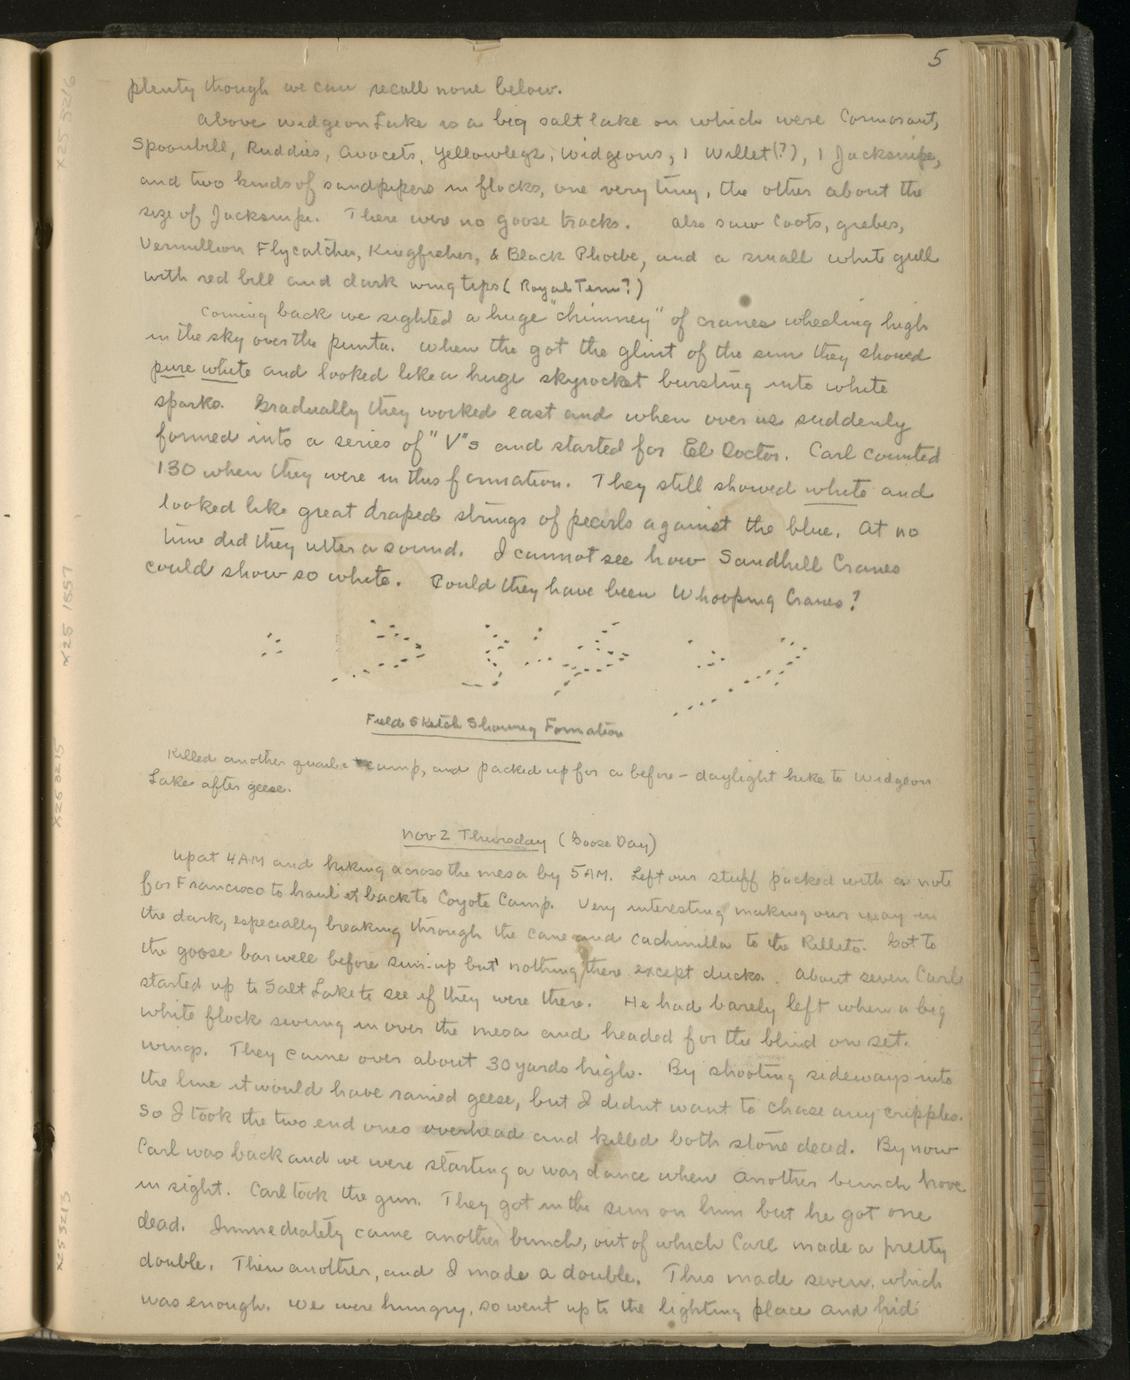 5
plenty though we can recall none below.
Above Widgeon Lake is a big salt lake on which were Cormorant,
Spoonbill, Ruddies, Avocets, Yellowlegs, Widgeons, 1 Willet(?), 1 Jacksnipe,
and two kinds of sandpipers in flocks, one very tiny, the other about the
size of Jacksnipe. There were no goose tracks. Also saw Coots, grebes,
Vermillion Flycatcher, Kingfisher, & Black Phoebe, and a small white gull
with red bill and dark wing tips (Royal Tern?)
Coming back we sighted a huge "chimney" of cranes wheeling high
in the sky over the punta. When the got the glint of the sun they showed
pure white and looked like a huge skyrocket bursting into white
sparks. Gradually they worked east and when over us suddenly
formed into a series of "V"s and started for El Doctor. Carl counted
130 when they were in this formation. They still showed white and
looked like great draped strings of pearls against the blue. At no
time did they utter a sound. I cannot see how Sandhill Cranes
could show so white. Could they have been Whooping Cranes?
Field Sketch Showing Formation
Killed another quail camp, and packed up for a before-daylight hike to Widgeon
Lake after geese.
Nov 2 Thursday (Goose Day)
Up at 4AM and hiking across the mesa by 5AM. Left our stuff packed with a note
for Francisco to haul it back to Coyote Camp. Very interesting making our way in
the dark, especially breaking through the cane and cachinilla to the Rillito. Got to
the goose bar well before sun-up but nothing there except ducks. About seven Carl
started up to Salt Lake to see if they were there. He had barely left when a big
white flock swung in over the mesa and headed for the blind on set
wings. They came over about 30 yards high. By shooting sideways into
the line it would have rained geese, but I didnt want to chase any cripples.
So I took the two end ones overhead and killed both stone dead. By now
Carl was back and we were starting a war dance when another bunch hove
in sight. Carl took the gun. They got in the sun on him but he got one
dead. Immediately came another bunch, out of which Carl made a pretty
double. Then another, and I made a double. This made seven, which
was enough. We were hungry, so went up to the lighting place and hid